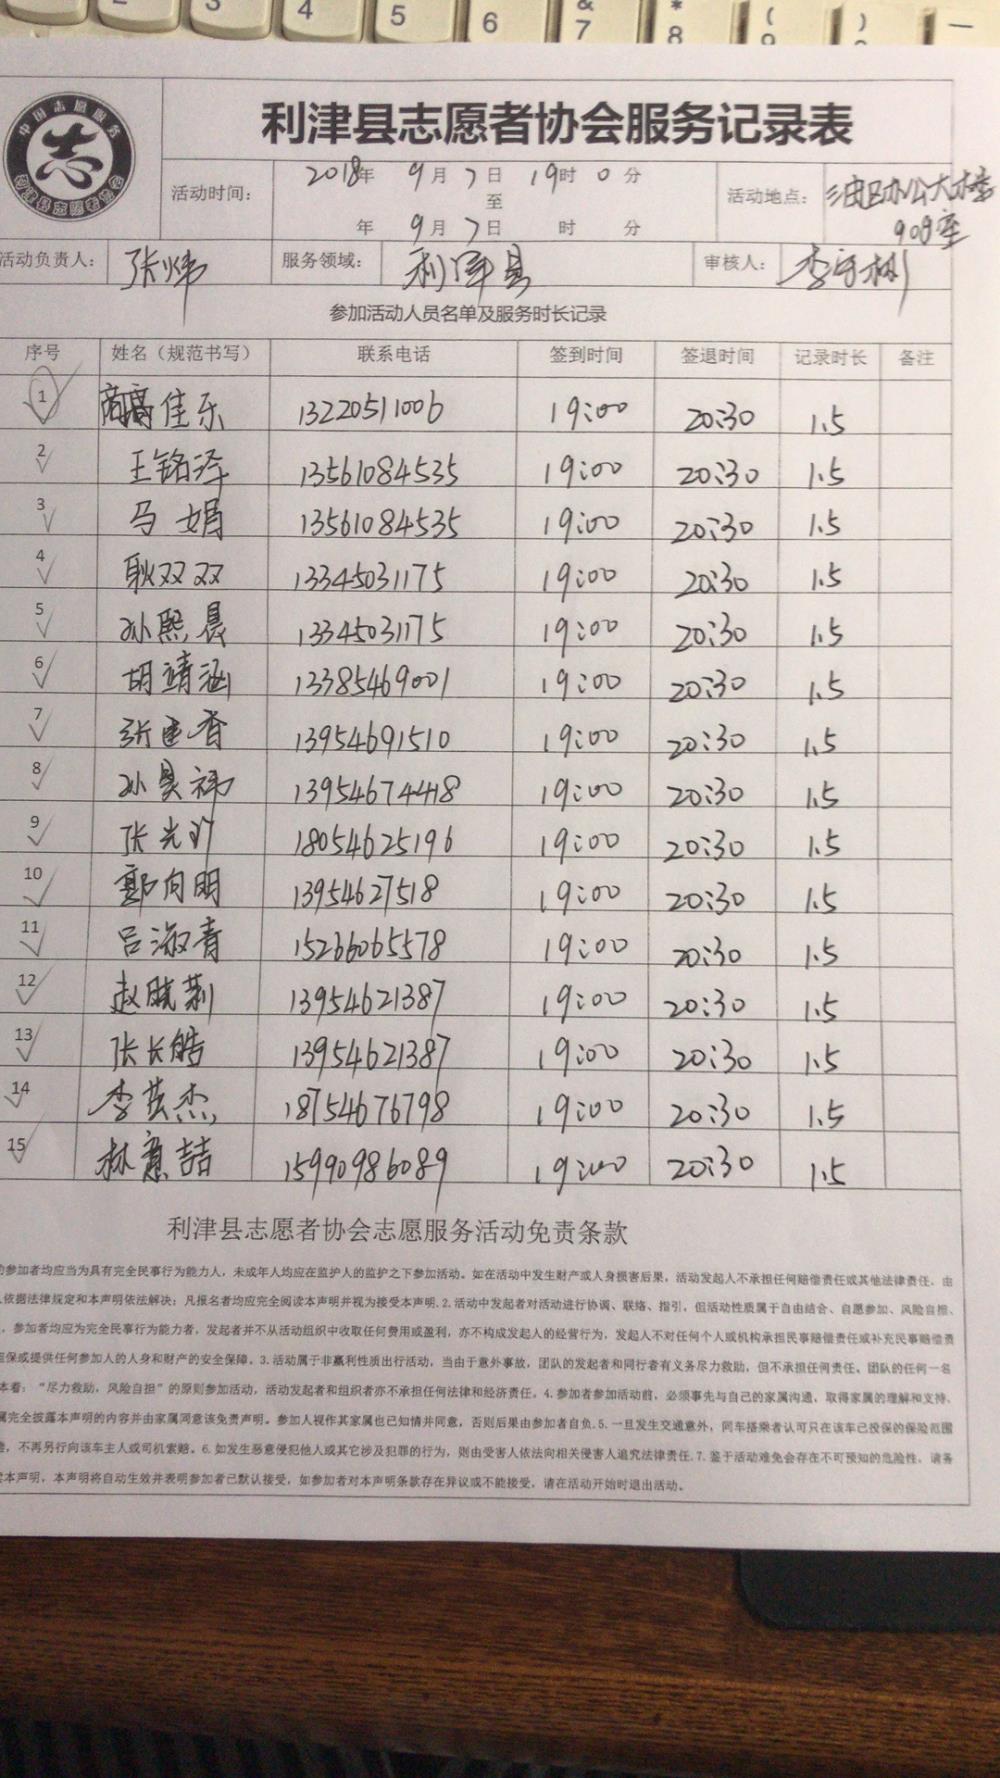 4 5 6 & 7 * 8 ( 9 ) —
中国志愿服务
志
利津县志愿者协会服务记录表
活动时间: 2018年 9月7日 19时 0分
至
年 9月7日 时 分
活动地点: 油区办公大楼
909室
活动负责人: 张炜 服务领域: 利津县 审核人: 李守彬
参加活动人员名单及服务时长记录
序号 姓名（规范书写） 联系电话 签到时间 签退时间 记录时长 备注
1 佳乐 13220511006 19:00 20:30 1.5
2 王铭泽 13561084535 19:00 20:30 1.5
3 马娟 13561084535 19:00 20:30 1.5
4 耿双双 13345031175 19:00 20:30 1.5
5 孙熙晨 13345031175 19:00 20:30 1.5
6 胡靖涵 13385469001 19:00 20:30 1.5
7 张建香 13954691510 19:00 20:30 1.5
8 孙昊祎 13954674418 19:00 20:30 1.5
9 张光 18054625196 19:00 20:30 1.5
10 郭向明 13954627518 19:00 20:30 1.5
11 吕淑青 15266065578 19:00 20:30 1.5
12 赵胱莉 13954621387 19:00 20:30 1.5
13 张长皓 13954621387 19:00 20:30 1.5
14 李英杰 18754676798 19:00 20:30 1.5
15 林意喆 15990986089 19:00 20:30 1.5
利津县志愿者协会志愿服务活动免责条款
参加者均应当为具有完全民事行为能力人，未成年人均应在监护人的监护之下参加活动。如在活动中发生财产或人身损害后果，活动发起人不承担任何赔偿责任或其他法律责任，由
依据法律规定和本声明依法解决；凡报名者均应完全阅读本声明并视为接受本声明.2.活动中发起者对活动进行协调、联络、指引，但活动性质属于自由结合、自愿参加、风险自担、
，参加者均应为完全民事行为能力者，发起者并不从活动组织中收取任何费用或盈利，亦不构成发起人的经营行为，发起人不对任何个人或机构承担民事赔偿责任或补充民事赔偿责
担保或提供任何参加人的人身和财产的安全保障。3.活动属于非赢利性质出行活动，当由于意外事故，团队的发起者和同行者有义务尽力救助，但不承担任何责任。团队的任何一名
本着：“尽力救助，风险自担”的原则参加活动，活动发起者和组织者亦不承担任何法律和经济责任。4.参加者参加活动前，必须事先与自己的家属沟通，取得家属的理解和支持，
属完全披露本声明的内容并由家属同意该免责声明。参加人视作其家属也已知情并同意，否则后果由参加者自负.5.一旦发生交通意外，同车搭乘者认可只在该车已投保的保险范围
，不再另行向该车主人或司机索赔。6.如发生恶意侵犯他人或其它涉及犯罪的行为，则由受害人依法向相关侵害人追究法律责任.7.鉴于活动难免会存在不可预知的危险性，请务
读本声明，本声明将自动生效并表明参加者已默认接受，如参加者对本声明条款存在异议或不能接受，请在活动开始时退出活动。